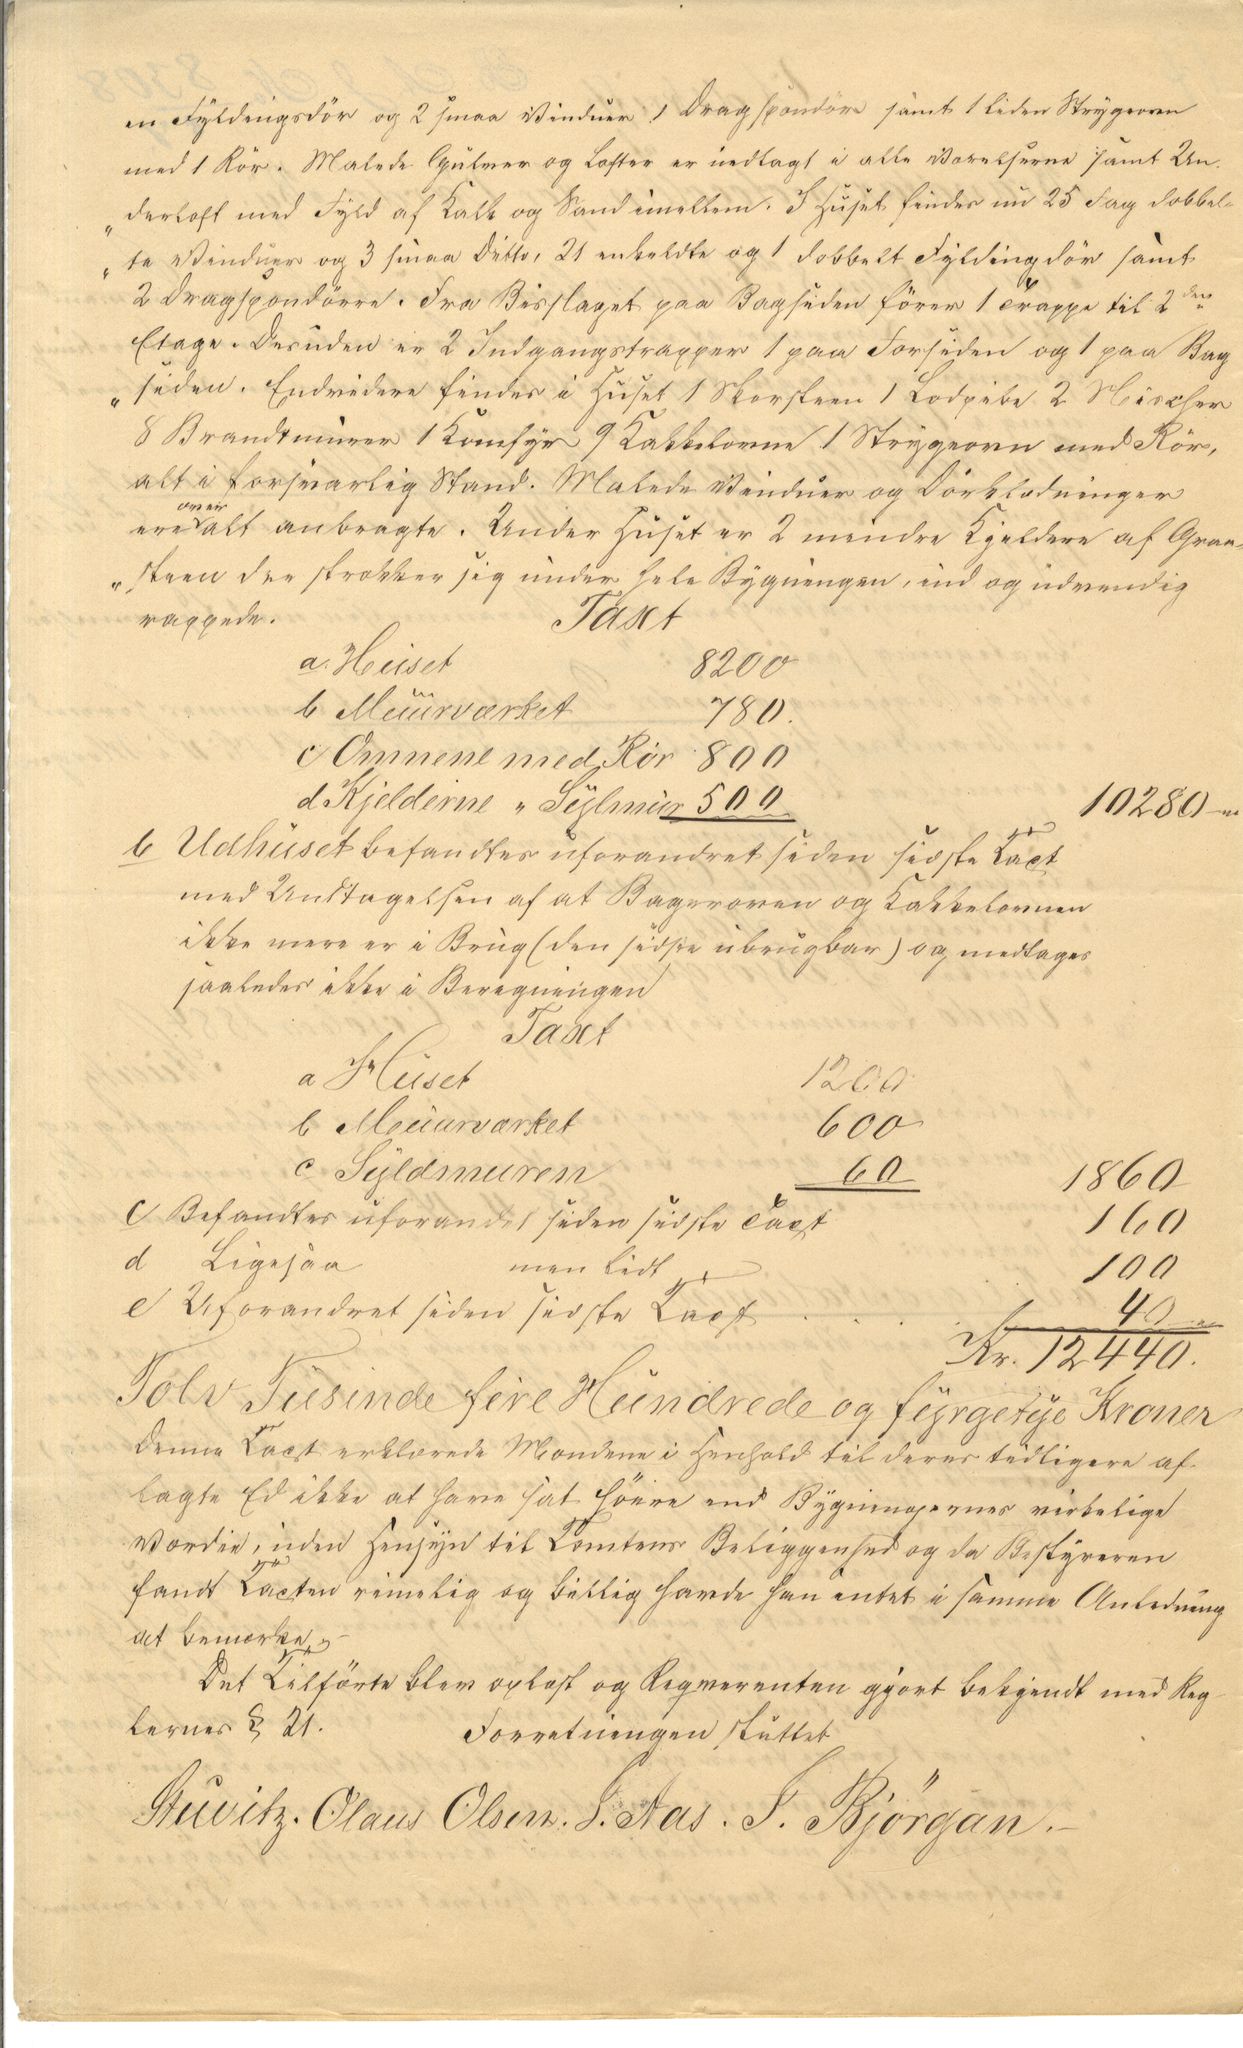 en Fyldingsdör og 2 smaa Vinduer 1 Dragspondör samt 1 liden Strygeovn
med 1 Rör. Malede Gulver og Lofter er indlagt i alle Værelserne samt Un-
„ derloft med Fyld af Kalk og Sand imellem. I Huset findes nu 25 Fag dobbel-
„ te Vinduer og 3 smaa Ditto, 21 enkeldte og 1 dobbelt Fyldingdör samt
2 Dragspondörre. Fra Bisslaget paa Bagsiden förer 1 Trappe til 2den
Etage. Desuden er 2 Indgangstrapper 1 paa Forsiden og 1 paa Bag
„ siden. Endvidere findes i Huset 1 Skorsteen 1 Lodpibe 2 Nischer
8 Brandtmurer 1 Komfyr 9 Kakkelovne 1 Strygeovn med Rör,
alt i forsvarlig Stand. Malede Vinduer og Dörklædninger
ere overalt anbragte. Under Huset er 2 mindre Kjeldere af Graa-
„ steen der strækker sig under hele Bygningen, ind og udvendig
rappede. Taxt
a. Huset 8200
b Muurværket 780.
c Ovnene med Rör 800
d Kjelderne „ Sylmur 500 10280 -
b Udhuset befandtes uforandret siden sidste Taxt
med Undtagelsen af at Bagerovnen og Kakkelovnen
ikke mere er i Brug (den sidste ubrugbar) og medtages
saaledes ikke i Beregningen
Taxt
a Huset 1200
b Muurværket 600
c Syldmuren 60 1860
c Befandtes uforandret siden sidste Taxt 160
d Ligesaa men lidt 100
e Uforandret siden sidste Taxt . . . . 40
Kr. 12440.
Tolv Tusinde fire Hundrede og fyrgetye Kroner
Denne Taxt erklærede Mændene i Henhold til deres tidligere af-
lagte Ed ikke at have sat höiere end Bygningernes virkelige
Værdie, uden Hensyn til Tomtens Beliggenhed og da Bestyreren
fandt Taxten rimelig og billig havde han intet i samme Anledning
at bemærke. -
Det Tilförte blev oplæst og Reqverenten gjort bekjendt med Reg-
lernes § 21. Forretningen sluttet
Stuvitz. Olaus Olsen. S. Aas. F. Björgan. -